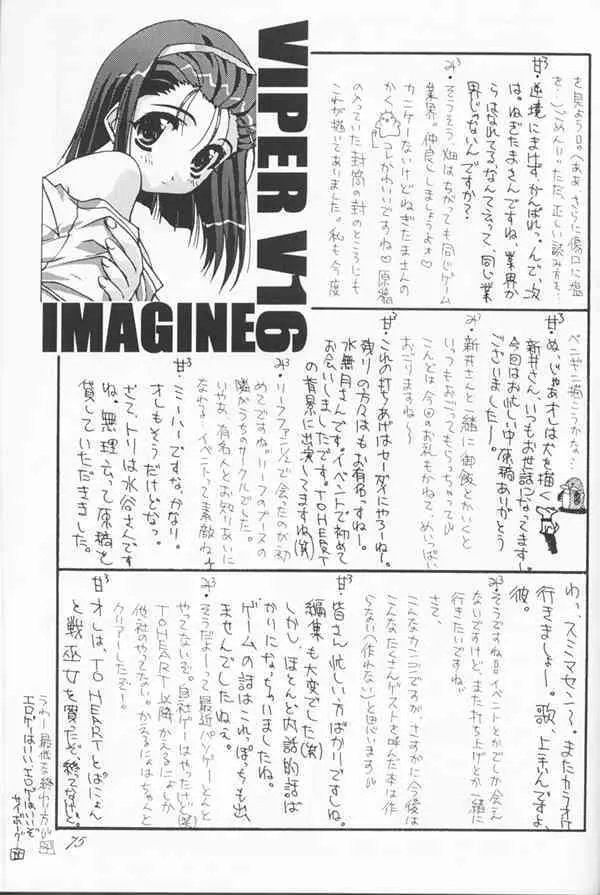 VIPER V16
IMAGINE
を見ようロ。(ああ、さらに傷口に塩
を…)ごめんいっただ、正しい読み方も…
甘³・逆境にまけず、がんばれっ。んで、次
は。ねぎたまさんですね、業界か
らはなれてるなんて云って、同じ業
界じゃないんですか?
み³・そうそう、畑はちがっても同じゲーム
業界。仲良くしましょうよォ♡
カンケーないけどねぎたまさんの
かく コレかわいいですね♡ 原稿
の入っていた封筒の封のところにも
これが描いてありました。私も今度
ペンギン描こうかな…
甘³
ぬ、じゃあオレは犬を描く
新井さん、いつもお世話になってます。
今回はお忙しい中原稿ありがとう
ございましたー。
み³
新井さんと一緒に御飯とかいくと
いつもおごってもらっちゃって
こんどは今回のお礼もかねて、めいっぱい
おごりますね〜
甘³
これの打ちあげはセーダイにやろーね。
残りの方々はもうお有名っすねー。
水無月さんです。イベントで初めて
お会いしましたです。TO HEART
の背景に出演してますね(笑)
み³
リーフファインで会ったのが初
めてですね。リーフのブースの
隣がうちのサークルでした。
いやあ、有名人とお知りあいに
なれる…イベントって素敵ね
甘³
ミーハーですな、かなり。
オレもそうだけどなっ。
さて、トリは水谷さんです
ね。無理言って原稿を
貸していただきました。
わっ、スミマセンー。またカラオケ
行きましょー。歌、上手いんですよ、
彼。
み³
そうですねロ。イベントとかでしか会え
ないですけど、また打ち上げとか一緒に
行きたいですね。
さて、
こんなカンジですが、さすがに今後は
こんなたくさんゲストを呼んだ本は作
らない(作れない)と思います
甘³
皆さん忙しい方ばかりですしね。
編集も大変でした(笑)
しかし、ほとんど内談的話ば
かりになっちゃいましたね。
ゲームの話はこれっぽっちも出
ませんでしたねぇ。
み³
そうだよーって最近パソゲーとんと
やってないぞ。自社ゲーはやったけど(笑)
TO HEART以降かえるにょしか
他社のやってない。かえるにょはちゃんと
クリアーしたぞー。
甘³
オレは、TO HEARTとぱにょん
と戦巫女を買ったぞ。終ってないけど。
うわー最低な終わり方だ
エロゲーはいい、エロゲーはいいぞ
サイボーグ
75